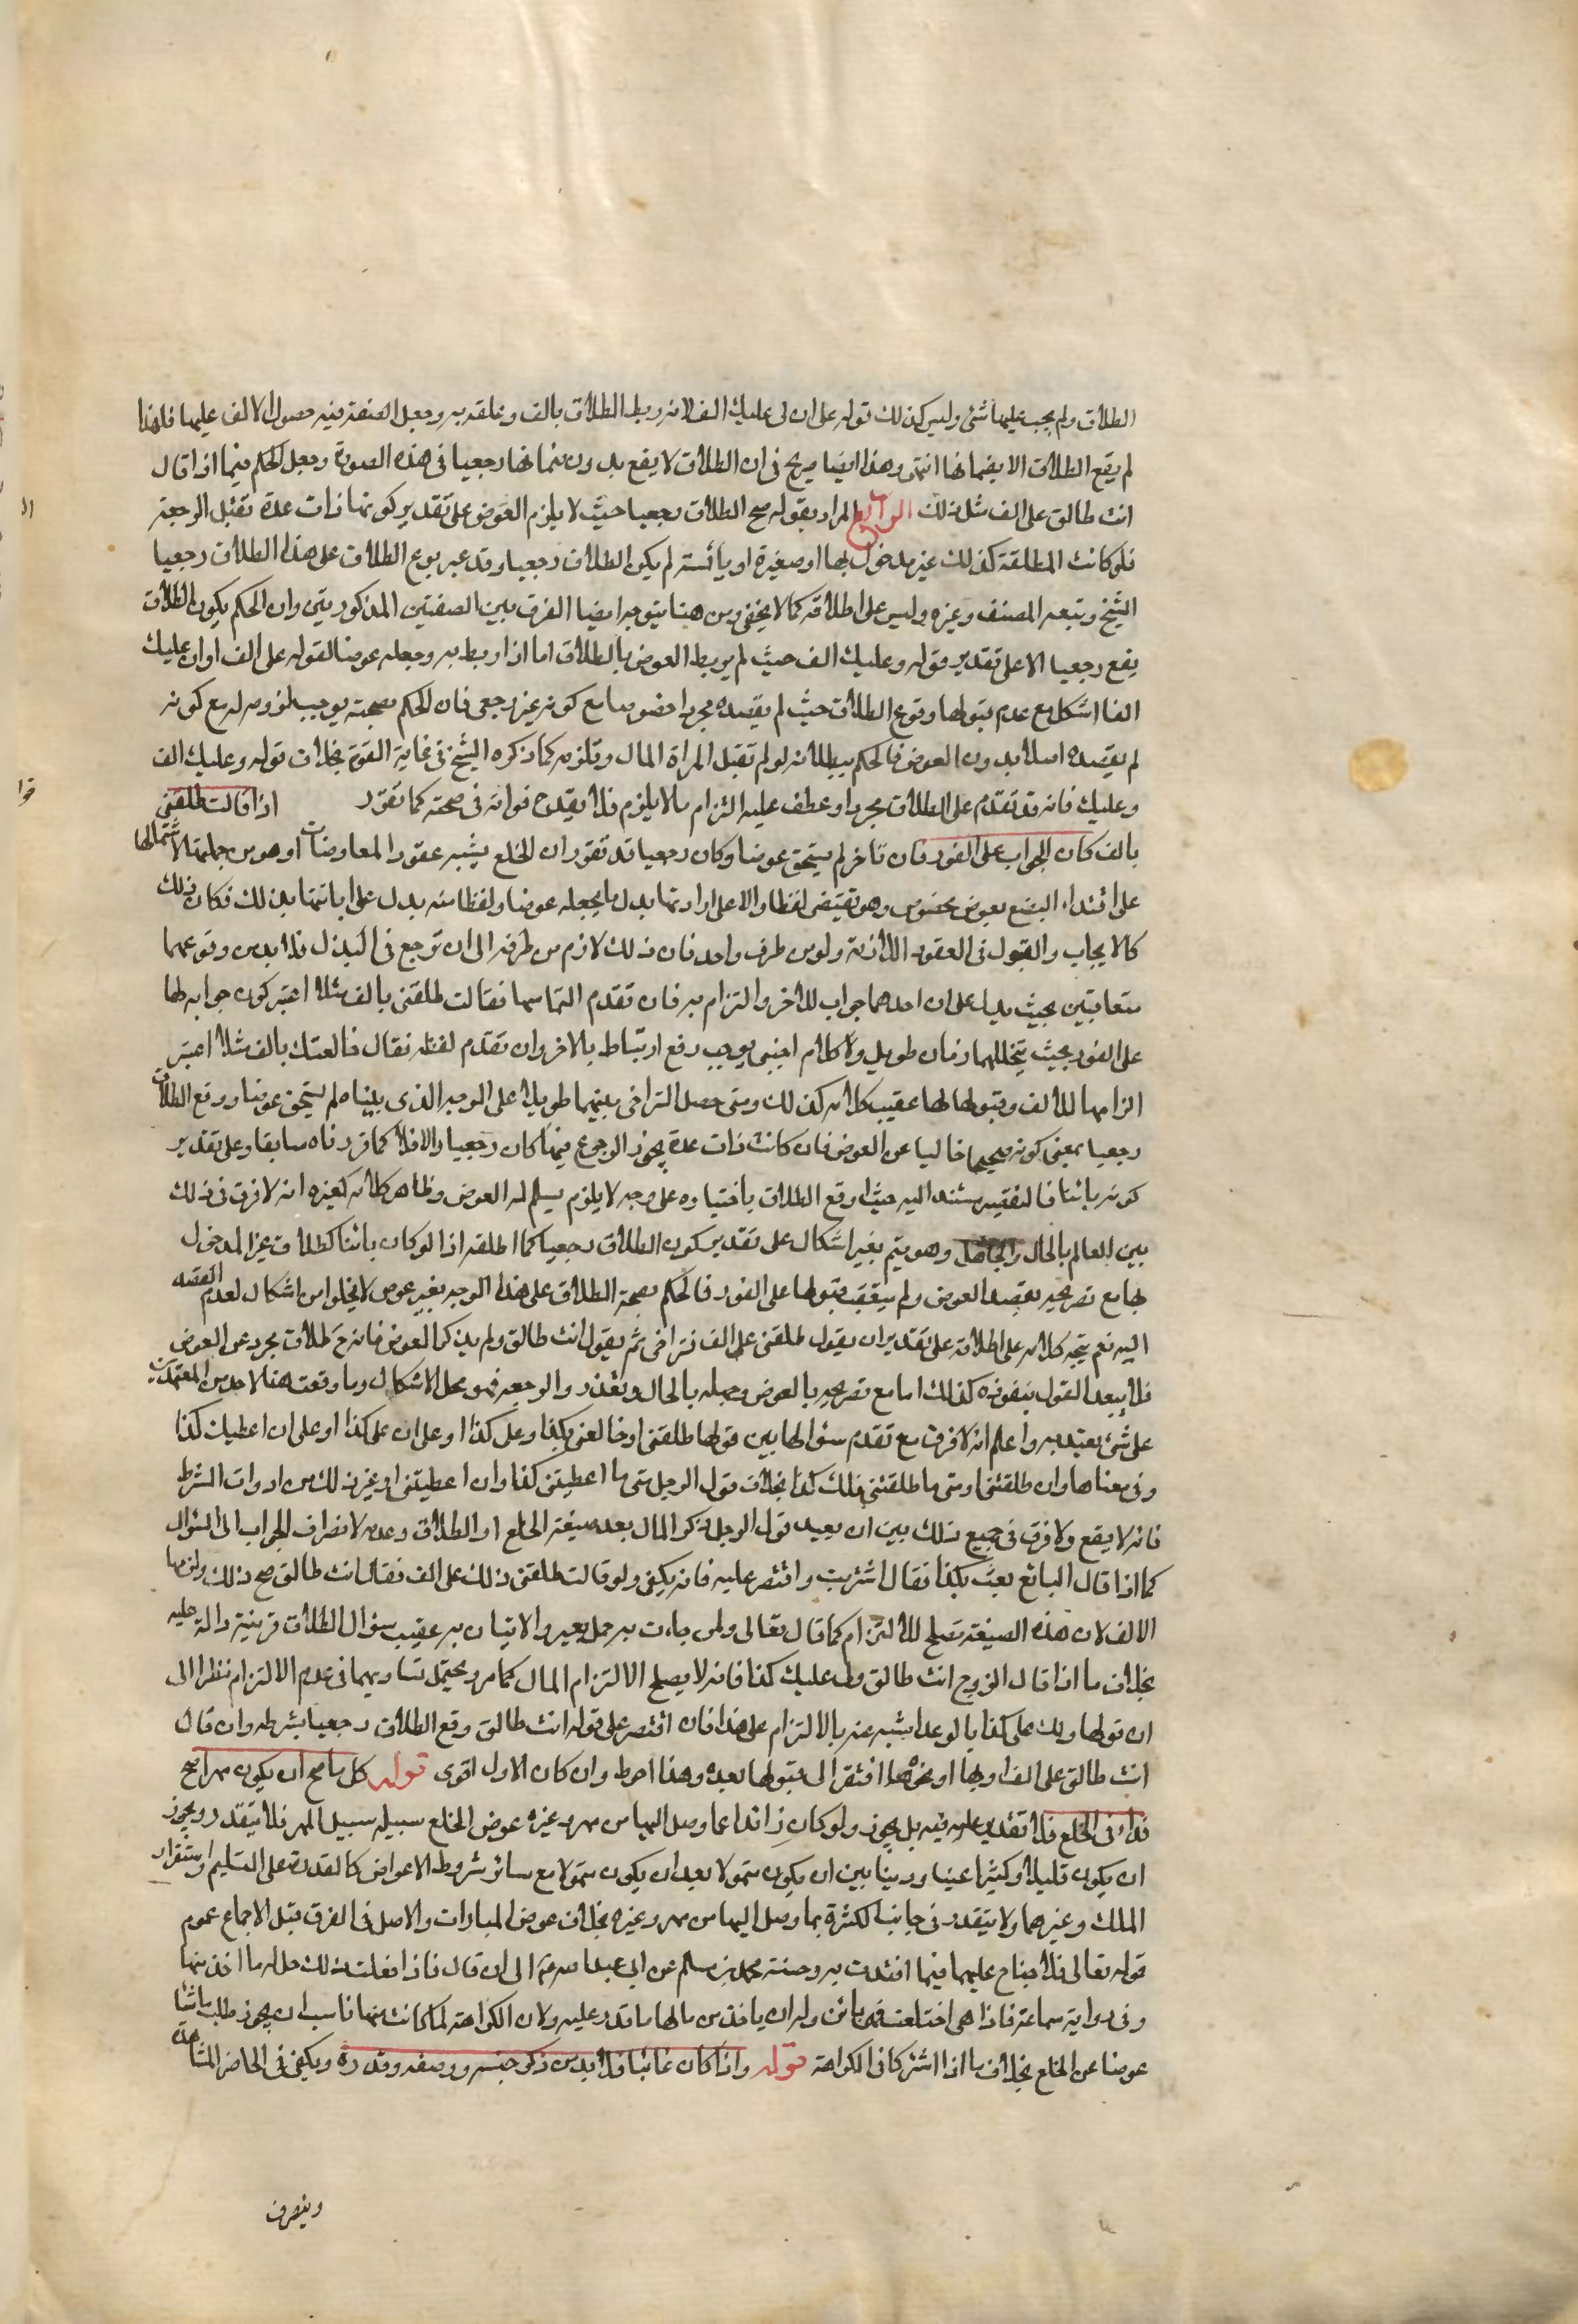 الطلاق ولم يجب عليها شئ وليس كذلك قوله على ان لى عليك الف لانه ربط الطلاق بالف وعلقه به وجعل الصفة فيه حصول الالف عليها فلهذا
لم يقع الطلاق الا بضمانها انتهى وهذا ايضا صريح فى ان الطلاق لا يقع بدون ضمانها رجعيا فى هذه الصورة وجعل الحكم فيما اذا قال
انت طالق على الف مثل ذلك الرابع المراد بقوله صح الطلاق رجعيا حيث لا يلزم العوض على تقدير كونها ذات عدة تقبل الرجعة
فلو كانت المطلقة كذلك غير مدخول بها او صغيرة او يائسة لم يكن الطلاق رجعيا وقد عبر بوقوع الطلاق على هذا الطلاق رجعيا
الشيخ وتبعه المصنف وغيره وليس على اطلاقه كما لا يخفى ومن هنا يتوجه ايضا الفرق بين الصفتين المذكورتين وان الحكم بكون الطلاق
يقع رجعيا الا على تقدير قوله وعليك الف حيث لم يربط العوض بالطلاق اما اذا ربط به وجعله عوضا لقوله على الف او ان عليك
الفا اشكل مع عدم قبولها وقوع الطلاق حيث لم يقصده مجردا خصوصا مع كونه غير رجعى فان الحكم بصحته يوجب لزومه له مع كونه
لم يقصده اصلا بدون العوض فالحكم ببطلانه لو لم تقبل المراة المال وتلزمه كما ذكره الشيخ فى غاية القوة بخلاف قوله وعليك الف
وعليك فانه قد تقدم على الطلاق مجردا وعطف عليه التزام ما لا يلزم فلا يقدح فواته فى صحته كما تقرر اذا قالت طلقنى
بالف كان الجواب على الفور فان تاخر لم يستحق عوضا وكان رجعيا قد تقرر ان الخلع يشبه عقود المعاوضات او هو من جملتها لاشتمالها
على افتداء البضع بعوض مخصوص وهو يقتضى لفظا دالا على ارادتها بدل ما يجعله عوضا ولفظا منه يدل على ابانتها بذلك فكان ذلك
كالايجاب والقبول فى العقود اللازمة ولو من طرف واحد فان ذلك لازم من طرفه الى ان ترجع فى البذل فلا بد من وقوعهما
متعاقبين بحيث يدل على ان احدهما جواب للاخر والتزام به فان تقدم التماسها فقالت طلقنى بالف مثلا اعتبر كون جوابه لها
على الفور بحيث يتخللهما زمان طويل ولا كلام اجنبى يوجب رفع ارتباط بالاخر وان تقدم لفظه فقال خالعتك بالف مثلا اعتبر
الزامها للالف وقبولها لها عقيب كلامه كذلك ومتى حصل التراخى بينهما طويلا على الوجه الذى بيناه لم يستحق عوضا ووقع الطلاق
رجعيا بمعنى كونه صحيحا خاليا عن العوض فان كانت ذات عدة يجوز الرجوع فيها كان رجعيا والا فلا كما قررناه سابقا وعلى تقدير
كونه بائنا فالتقصير مستند اليه حيث اوقع الطلاق باختياره على وجه لا يلزم يسلم له العوض وظاهر كلامه كغيره انه لا فرق فى ذلك
بين العالم بالحال والجاهل وهو يتم بغير اشكال على تقدير كون الطلاق رجعيا كما اطلقه اذا لو كان بائنا كطلاق غير المدخول
بها مع تصريحه بقصد العوض ولم يتعقب قبولها على الفور فالحكم بصحة الطلاق على هذا الوجه بغير عوض لا يخلوا من اشكال لعدم القصد
اليه نعم يتجه كلامه على اطلاقه على تقدير ان يقول طلقنى على الف فتراخى ثم يقول انت طالق ولم يذكر العوض فانه ح طلاق مجرد عن العوض
فلا يبعد القول بنفوذه كذلك اما مع تصريحه بالعوض وجهله بالحال وتعذر الرجعة فهو محل الاشكال وما وقعت هنا لاحد من المعتمدين
على شئ يعتد به واعلم انه لا فرق مع تقدم سئوالها بين قولها طلقنى او خالعنى بكذا وعلى كذا او على ان على كذا او على ان اعطيك كذا
وفى معناها وان طلقتنى او متى ما طلقتنى فلك كذا بخلاف قول الرجل متى ما اعطيتنى كذا وان اعطيتنى او غير ذلك من ادوات الشرط
فانه لا يقع ولا فرق فى جميع ذلك بين ان يعيد قول الرجل ذكر المال بعد صيغة الخلع او الطلاق وعدمه لانصراف الجواب الى السؤال
كما اذا قال البائع بعت بكذا فقال اشتريت واقتصر عليه فانه يكفى ولو قالت طلقنى ذلك على الف فقال انت طالق صح ذلك ولزمها
الالف لان هذه الصيغة تصلح للالتزام كما قال تعالى ولمن جاءت به حمل بعير والاتيان به عقيب سئوال الطلاق قرينة دالة عليه
بخلاف ما اذا قال الزوج انت طالق ولى عليك كذا فانه لا يصلح الا لتزام المال كما مر ويحتمل تساويهما فى عدم الالتزام نظرا الى
ان قولها ولك على كذا بالوعد اشبه عنه بالالتزام على هذا فان اقتصر على قوله انت طالق وقع الطلاق رجعيا بشرطه وان قال
انت طالق على الف او بها او نحوهما افتقر الى قبولها بعده وهذا احوط وان كان الاول اقوى قوله كل ما صح ان يكون مهرا صح
فداء فى الخلع فلا تقدير عليه فيه بل يجوز ولو كان زائدا عما وصل اليها من مهر وغيره عوض الخلع سبيله سبيل المهر فلا يتقدر ويجوز
ان يكون قليلا وكثيرا عينا ودينا بين ان يكون متمولا بعد ان يكون متمولا مع سائر شروط الاعواض كالقدرة على التسليم واستقرار
الملك وغيرهما ولا يتقدر فى جانب الكثرة بما وصل اليها من مهر وغيره بخلاف عوض المبارات والاصل فى الفرق قبل الاجماع عموم
قوله تعالى فلا جناح عليهما فيما افتدت به وحسنة محمد بن مسلم عن ابى عبد الله ع الى ان قال فاذا فعلت ذلك حل له ما اخذ منها
وفى رواية سماعة فاذا هى اختلعت فهى بائن وله ان ياخذ من مالها ما قدر عليه ولان الكراهة لما كانت منها ناسب ان يجوز طلب ما شا
عوضا عن الخلع بخلاف ما اذا اشتركا فى الكراهة قوله واذا كان غائبا فلا بد من ذكر جنسه ووصفه وقدره ويكفى فى الحاضر المشاهدة
وينصرف